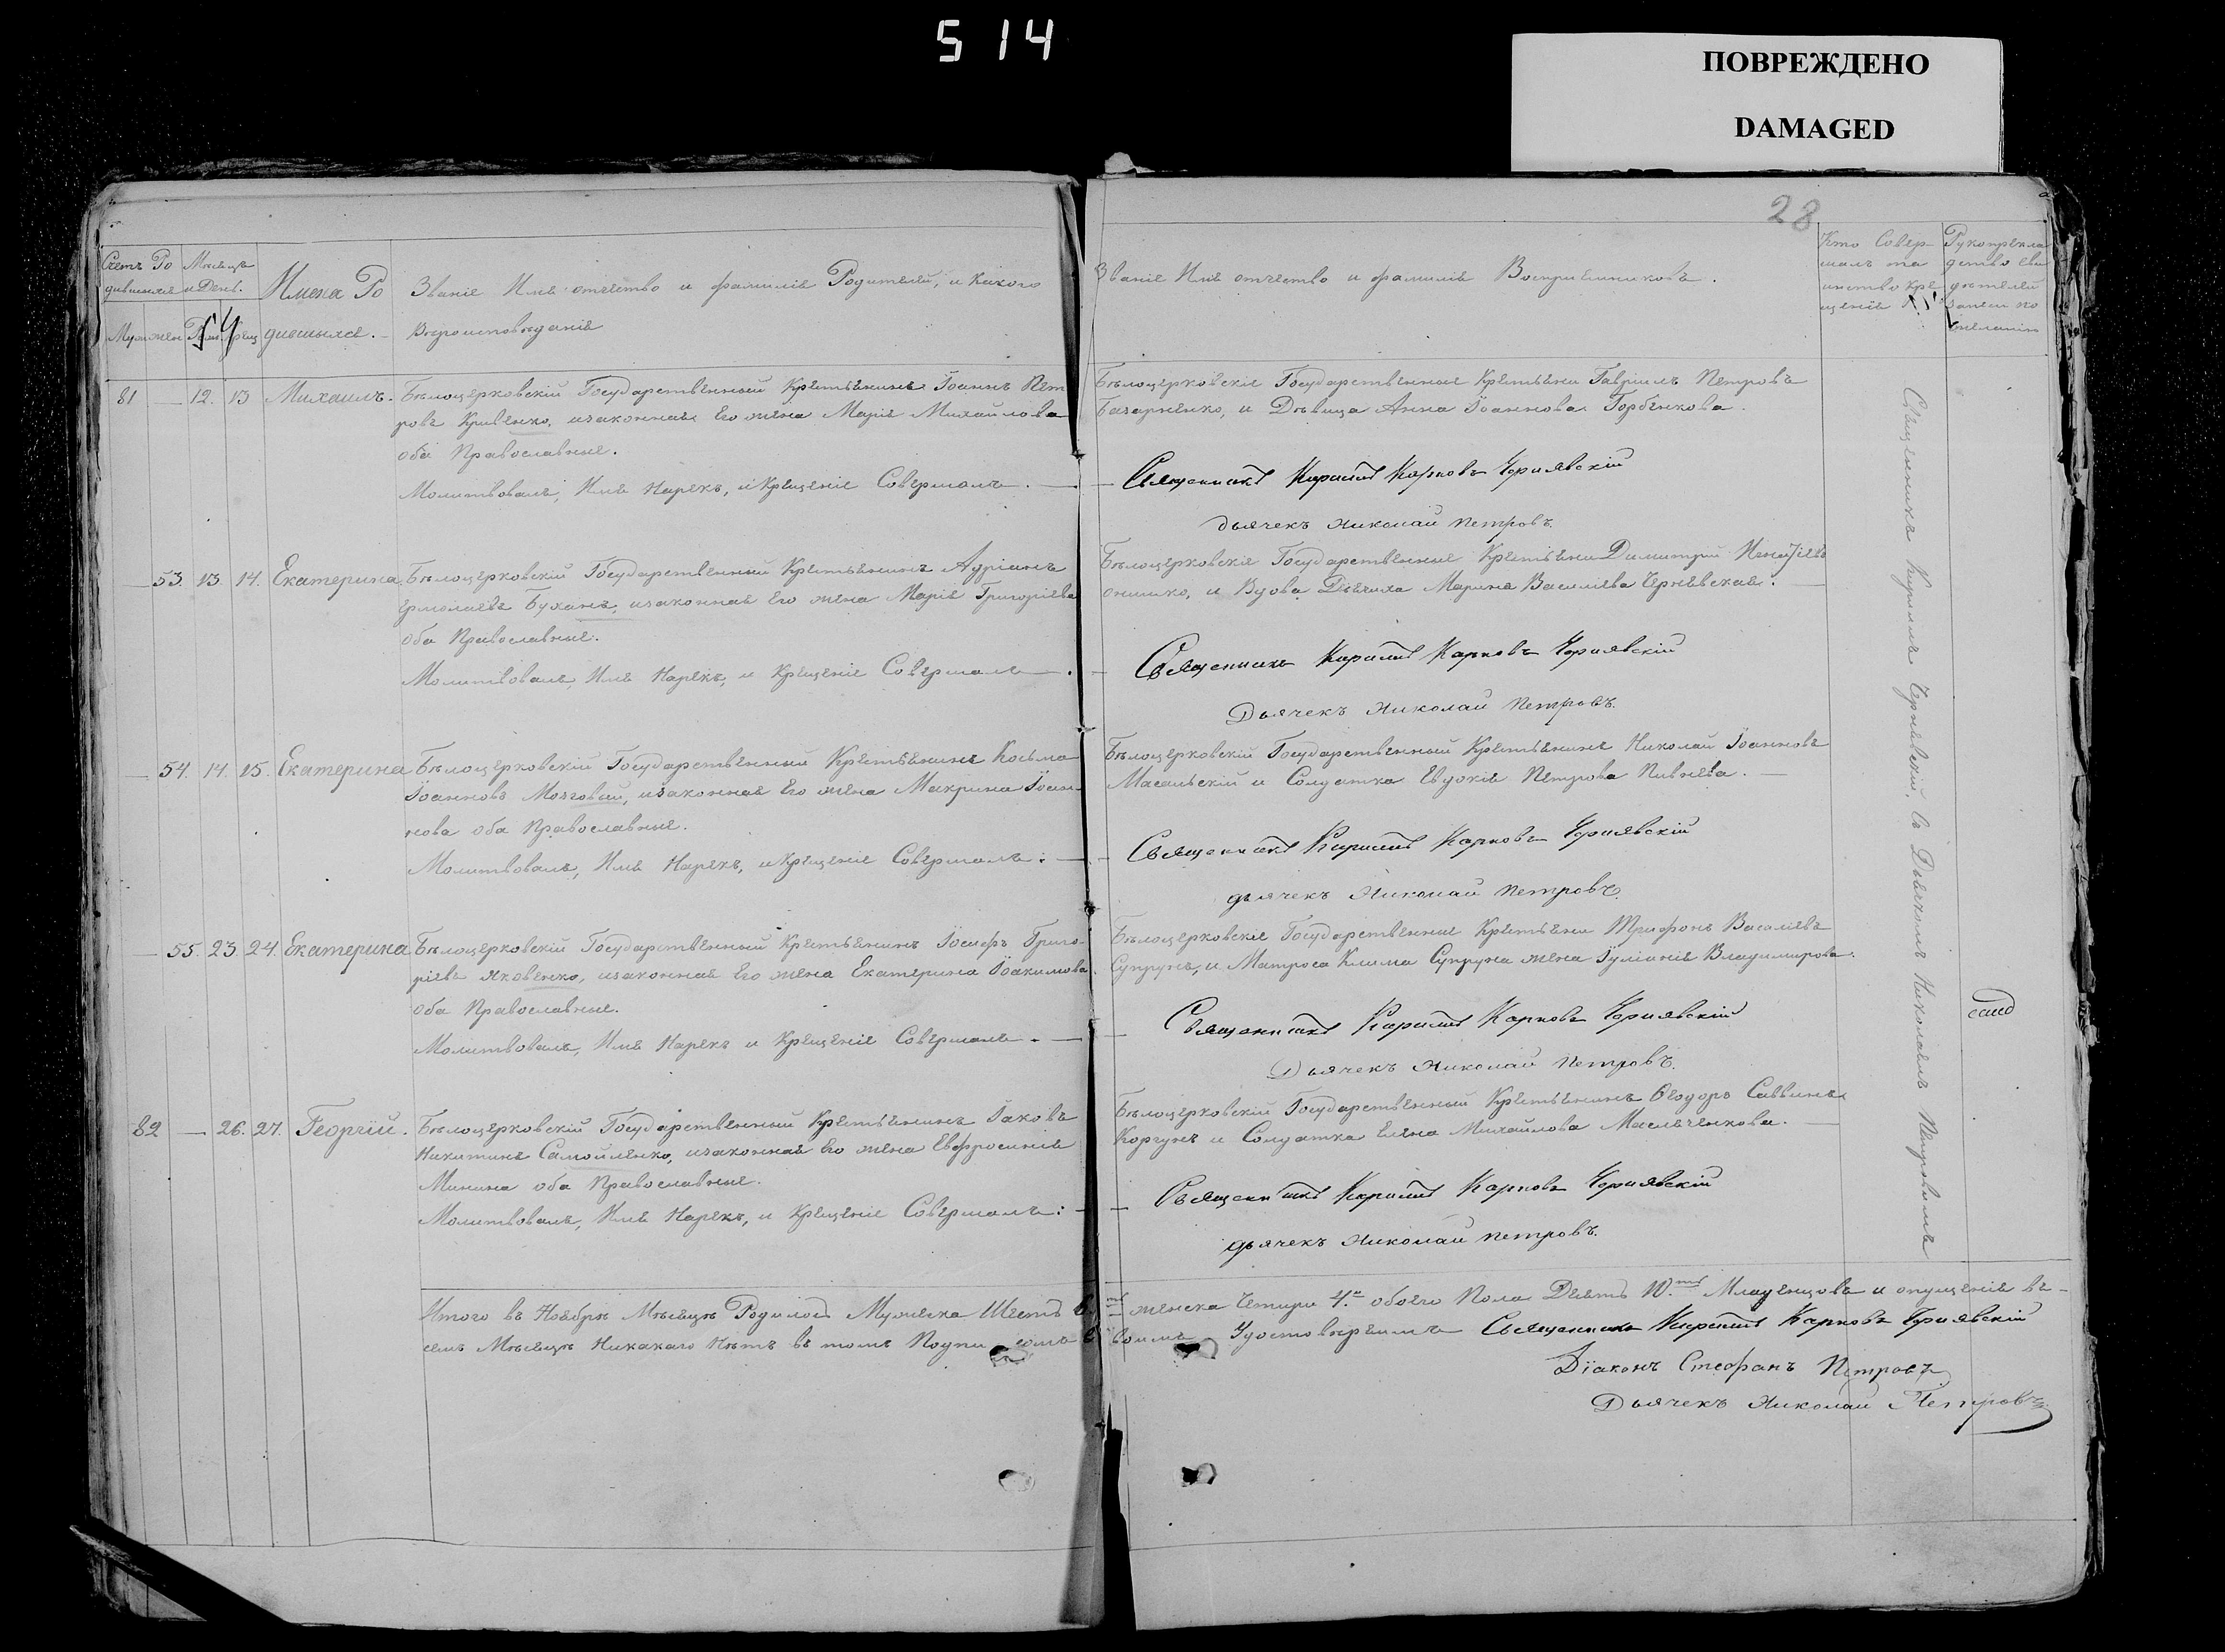 514
ПОВРЕЖДЕНО
DAMAGED
28
Счетъ Ро
дившихся
Мѣсяцъ
и День.
Муж
жен
Имена Ро
дившихся.
Званіе Имя отчество и фамилія Родителей, и какого
вѣроисповѣданія
Званіе Имя отчество и фамилія Воспріемниковъ.
Кто совер-
шалъ та
инство кре
щенія
Рукоприкла
дство сви
дѣтелей
записи по
желанію
81 — 12. 13 Михаилъ. Бѣлоцерковскій Государственный Крестьянинъ Іоаннъ Пет
ровъ Кривенко, изаконная Его жена Марія Михайлова
оба Православные.
Молитвовалъ, Имя Нарекъ, и Крещеніе Совершалъ. —
Бѣлоцерковскіе Государственные Крестьяни Гавріилъ Петровъ
Базарненко, и Дѣвица Анна Іоаннова Горбенкова.
Священникъ Кирилъ Карповъ Чернявскій
дьячекъ Николай Петровъ.
— 53. 13. 14. Екатерина. Бѣлоцерковскій Государственный Крестьянинъ Адріанъ
Ермолаевъ Буханъ, изаконная Его жена Марія Григоріева
оба Православные.
Молитвовалъ, Имя Нарекъ, и Крещеніе Совершалъ —.
Бѣлоцерковскіе Государственные Крестьяни Димитрій
онишко, и Вдова Дьячиха Марина Василіева Чернявская.
Священникъ Кирилъ Карповъ Чернявскій
Дьячекъ Николай Петровъ.
— 54. 14. 15. Екатерина Бѣлоцерковскій Государственный Крестьянинъ Косьма
Іоанновъ Мозговый, изаконная Его жена Макрина Іоан-
нова оба Православные.
Молитвовалъ, Имя Нарекъ, и Крещеніе Совершалъ: —
Бѣлоцерковскій Государственный Крестьянинъ Николай Іоанновъ
Масальскій и Солдатка Евдокія Петрова Пивнева. —
Священникъ Кирилъ Карповъ Чернявскій
дьячекъ Николай Петровъ.
— 55. 23. 24. Екатерина Бѣлоцерковскій Государственный Крестьянинъ Іосифъ Григо-
ріевъ Яковенко, изаконная Его жена Екатерина Іоакимова
оба Православные.
Молитвовалъ, Имя Нарекъ и Крещеніе Совершалъ. —
Бѣлоцерковскіе Государственные Крестьяни Трифонъ Василіевъ
Супрунъ, и Матроса Клима Супруна жена Іуліанія Владимирова.
Священникъ Кирилъ Карповъ Чернявскій
Дьячекъ Николай Петровъ.
82 — 26. 27. Георгій. Бѣлоцерковскій Государственный Крестьянинъ Іаковъ
Никитинъ Самойленко, изаконная Его жена Евфросинія
Минина оба Православные.
Молитвовалъ, Имя Нарекъ, и Крещеніе Совершалъ: —
Бѣлоцерковскій Государственный Крестьянинъ Ѳеодоръ Саввинъ
Коргунъ и Солдатка Елена Михайлова Масюченкова. —
Священникъ Кирилъ Карповъ Чернявскій
дьячекъ Николай Петровъ.
Священникъ Кириллъ Чернявскій, Съ Дьячкомъ Николаемъ Петровымъ
Итого въ Ноябрѣ Мѣсяцѣ Родилось Мужеска Шесть женска Четыри 4.е обоего Пола Десять 10.ть Младенцовъ и опущенія въ —
семъ Мѣсяцѣ Никакаго Нѣтъ въ томъ Подпи Удостовѣряемъ Священникъ Кирилъ Карповъ Чернявскій
Діаконъ Стефанъ Петровъ
Дьячекъ Николай Петровъ